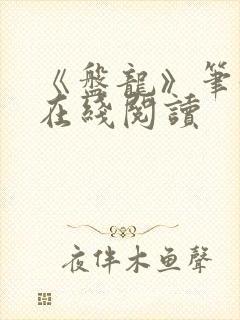 《盤龍》筆
在綫閱讀
夜伴木鱼聲